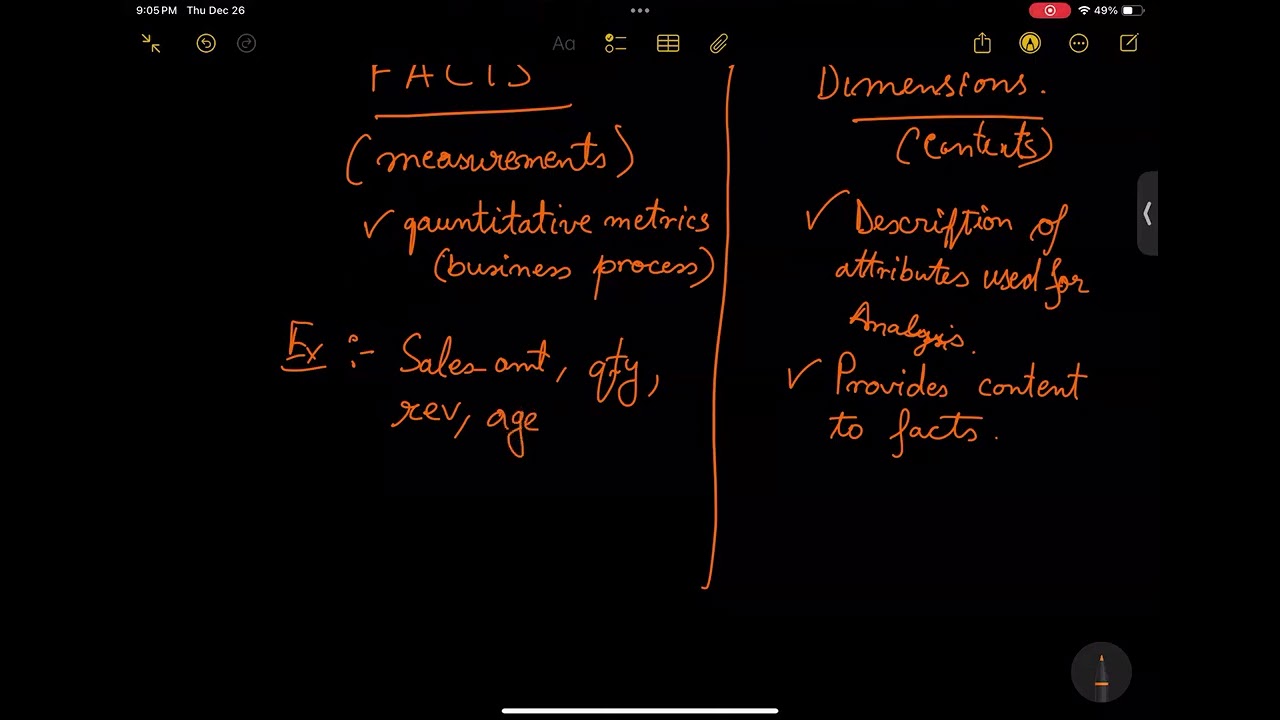 9:05 PM Thu Dec 26
49%
Aa
FACTS
(measurements)
✓ qauntitative metrics
(business process)
Ex :- Sales amt, qty,
rev, age
Dimensions.
(Contexts)
✓ Description of
attributes used for
Analysis.
✓ Provides content
to facts.